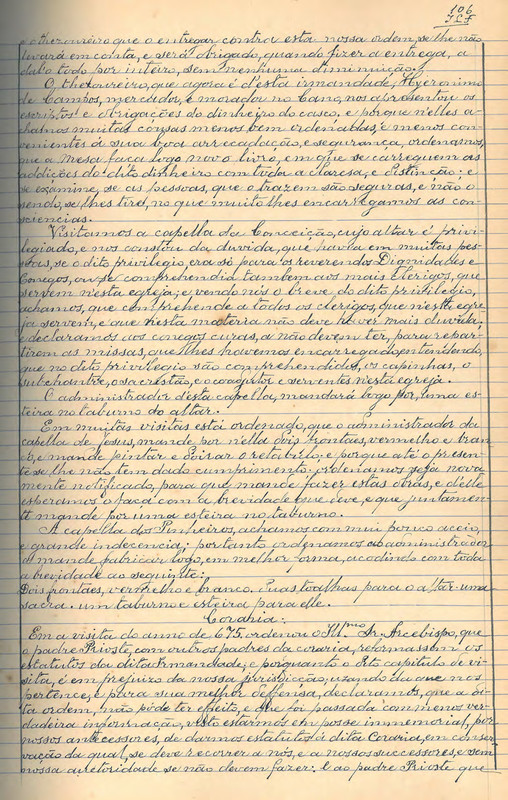 106
e o thezoureiro que o entregar contra esta nossa ordem, se lhe não
levará em conta, e será obrigado, quando fizer a entrega, a
dal-o todo por inteiro, sem nenhuma diminuição.
O thezoureiro, que agora é d'esta irmandade, Hyeronimo
de Campos, mercador, e morador no Cano, nos apresentou os
escriptos e obrigações do dinheiro do casco, e porque n'elles a-
chamos muitas cousas menos bem ordenadas, e menos con-
venientes á sua boa arrecadação, e segurança, ordenamos,
que a Mesa faça logo novo livro, em que se carreguem as
addicções do dito dinheiro com toda a claresa, e distincção: e
se examine, se as pessoas, que o trazem são seguras, e não o
sendo, se lhes tird, no que muito lhes encarregamos as con-
sciencias.
Visitamos a capella da Conceição, cujo altar é privi-
legiado, e nos constou da duvida, que havia em muitas pes-
soas, se o dito privilegio, era só para os reverendos Dignidades e
Conegos, ou se comprehendia tambem aos mais clerigos, que
servem n'esta egreja; e vendo nós o breve do dito privilegio,
achamos, que comprehende a todos os clerigos, que n'esta egre-
ja servem, e que n'esta materia não deve haver mais duvida;
e declaramos aos conegos curas, a não devem ter, para repar-
tirem as missas, que lhes havemos encarregado, entendendo,
que no dito privilegio são comprehendidos, os capinhas, o
subchantre, o sacristão, e o coagutor e serventes n'esta egreja.
O administrador d'esta capella, mandará logo pôr, uma es-
teira no taburno do altar.
Em muitas visitas está ordenado, que o administrador da
capella de Jesus, mande pôr n'ella dois frontaes, vermelho e bran-
co, e mande pintar e doirar o retabulo, e porque até o presen-
te se lhe não tem dado cumprimento: ordenamos seja nova-
mente notificado, para que mande fazer estas obras, e d'elle
esperamos o faça com a brevidade que deve, e que juntamen-
te mande pôr uma esteira no taburno.
A capella dos Pinheiros, achamos com mui pouco aceio,
e grande indecencia; portanto ordenamos ao administrador
a mande fabricar logo, em melhor forma, acodindo com toda
a brevidade ao seguinte:
Dois frontaes, vermelho e branco. Duas toalhas para o altar. uma
sacra. um taburno e esteira para elle.
Coraria:
Em a visita do anno de 675, ordenou o Ill.mo Sr. Arcebispo, que
o padre Prioste, com outros padres da coraria, reformassem os
estatutos da dita Irmandade; e porquanto o dito capitulo de vi-
sita, é em prejuizo da nossa jurisdicção, uzando da que nos
pertence, e para sua melhor defensa, declaramos, que a di-
ta ordem, não póde ter effeito, e que foi passada com menos ver-
dadeira informação, visto estarmos em posse immemorial, por
nossos antecessores, de darmos estatutos á dita Coraria, em conser-
vação da qual, se deve recorrer a nós, e a nossos successores, e sem
nossa auctoridade se não devem fazer: E ao padre Prioste que